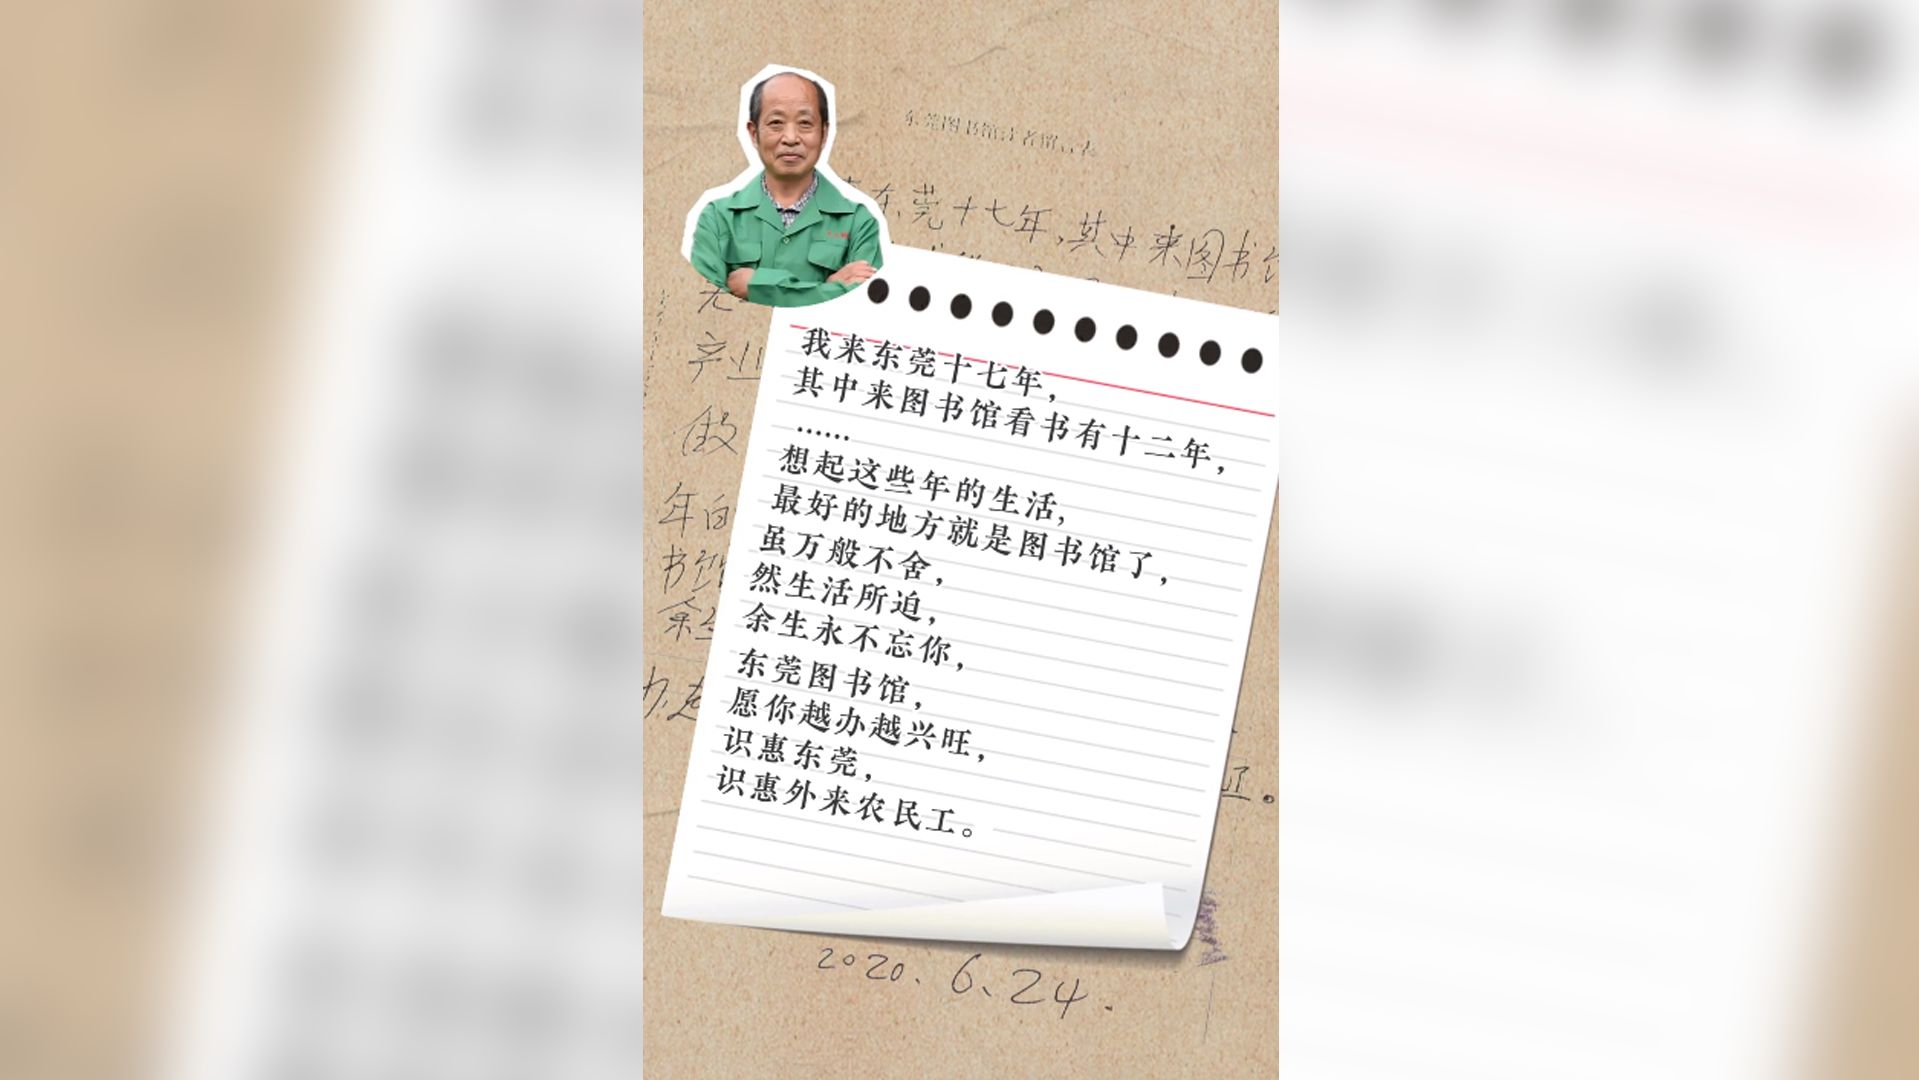 东莞图书馆读者留言表
东莞十七年，其中来图书
产业
做
年的
书馆
余生
我来东莞十七年，
其中来图书馆看书有十二年，
……
想起这些年的生活，
最好的地方就是图书馆了，
虽万般不舍，
然生活所迫，
余生永不忘你，
东莞图书馆，
愿你越办越兴旺，
识惠东莞，
识惠外来农民工。
2020、6、24.